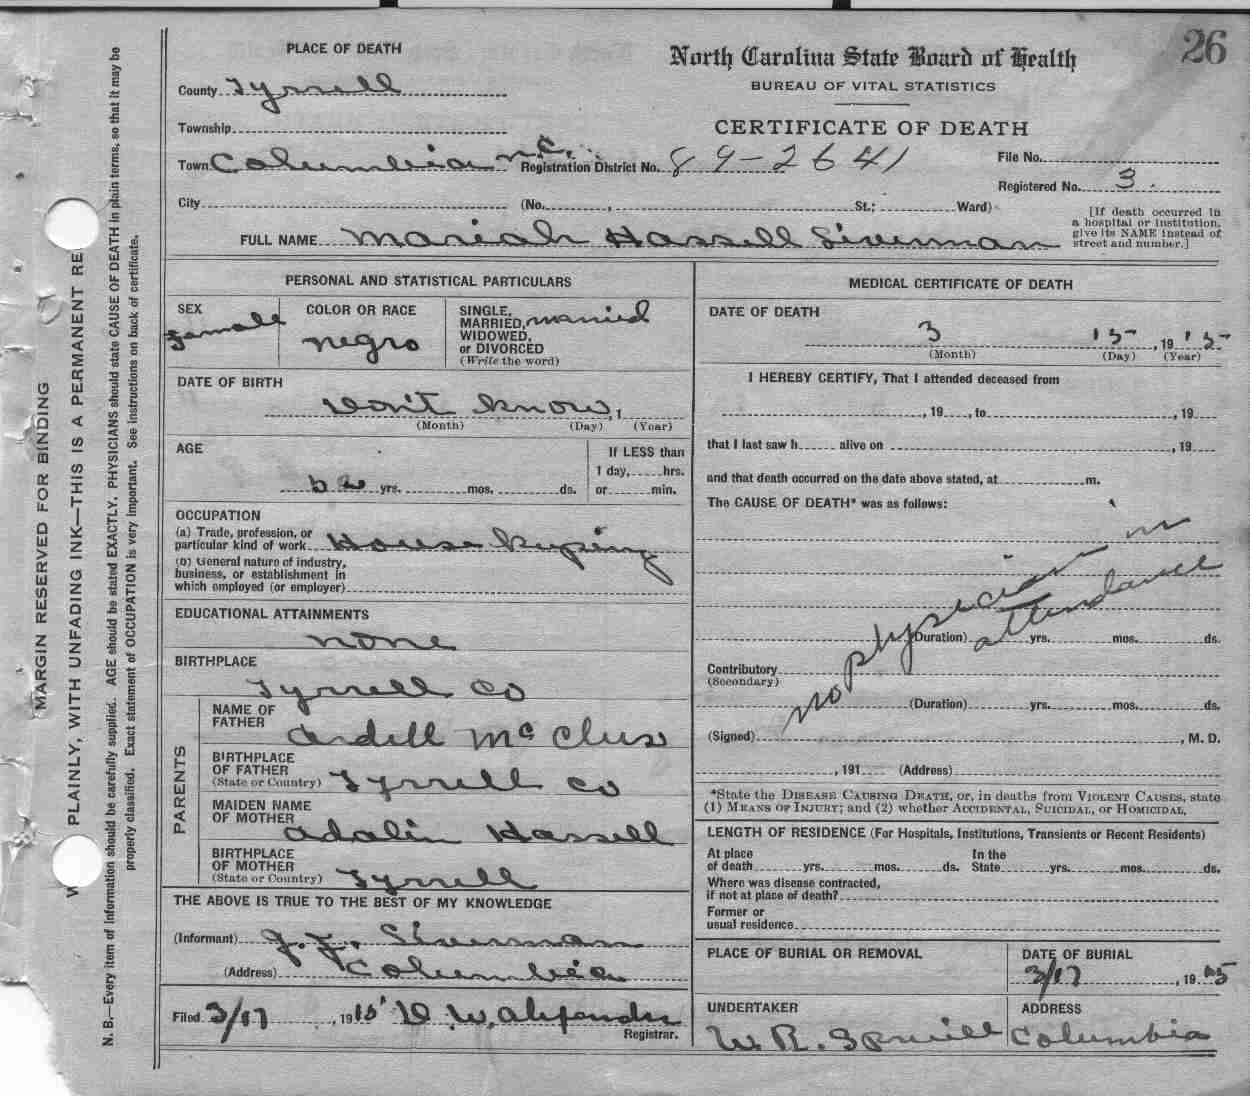 26
PLACE OF DEATH
North Carolina State Board of Health
BUREAU OF VITAL STATISTICS
CERTIFICATE OF DEATH
County Tyrrell
Township
Town Columbia N.C. Registration District No. 89-2641
File No.
Registered No. 3.
City (No. , St.; Ward)
[If death occurred in a hospital or institution, give its NAME instead of street and number.]
FULL NAME Mariah Hassell Liverman
PERSONAL AND STATISTICAL PARTICULARS
SEX
Female
COLOR OR RACE
negro
SINGLE,
MARRIED, married
WIDOWED,
or DIVORCED
(Write the word)
DATE OF BIRTH
Don't know, 1
(Month) (Day) (Year)
AGE
yrs. mos. ds.
If LESS than
1 day, hrs.
or min.
OCCUPATION
(a) Trade, profession, or
particular kind of work House Kuping
(b) General nature of industry,
business, or establishment in
which employed (or employer)
EDUCATIONAL ATTAINMENTS
none
BIRTHPLACE
Tyrrell Co
PARENTS
NAME OF
FATHER
Ardell
BIRTHPLACE
OF FATHER
(State or Country) Tyrrell Co
MAIDEN NAME
OF MOTHER
Adalin Hassell
BIRTHPLACE
OF MOTHER
(State or Country) Tyrrell
THE ABOVE IS TRUE TO THE BEST OF MY KNOWLEDGE
(Informant) Liverman
(Address) Columbia
Filed 3/17, 1915 W. Alexander
Registrar.
MEDICAL CERTIFICATE OF DEATH
DATE OF DEATH
3 15, 19 15
(Month) (Day) (Year)
I HEREBY CERTIFY, That I attended deceased from
, 19 , to , 19
that I last saw h alive on , 19
and that death occurred on the date above stated, at m.
The CAUSE OF DEATH* was as follows:
no physician in
attendance
(Duration) yrs. mos. ds.
Contributory
(Secondary)
(Duration) yrs. mos. ds.
(Signed) , M. D.
, 191 (Address)
*State the DISEASE CAUSING DEATH, or, in deaths from VIOLENT CAUSES, state
(1) MEANS OF INJURY; and (2) whether ACCIDENTAL, SUICIDAL, OR HOMICIDAL.
LENGTH OF RESIDENCE (For Hospitals, Institutions, Transients or Recent Residents)
At place
of death yrs. mos. ds. In the State yrs. mos. ds.
Where was disease contracted,
if not at place of death?
Former or
usual residence
PLACE OF BURIAL OR REMOVAL
DATE OF BURIAL
3/17, 19 15
UNDERTAKER
W. R. Spruill
ADDRESS
Columbia
MARGIN RESERVED FOR BINDING
PLAINLY, WITH UNFADING INK—THIS IS A PERMANENT RE
N. B.—Every item of information should be carefully supplied. AGE should be stated EXACTLY. PHYSICIANS should state CAUSE OF DEATH in plain terms, so that it may be
properly classified. Exact statement of OCCUPATION is very important. See instructions on back of certificate.